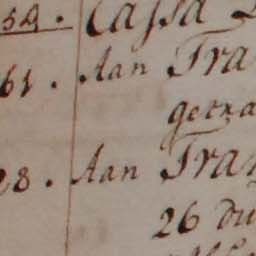 59. Cassa
61. Aan Tra
getra
28. Aan Tra
26 du